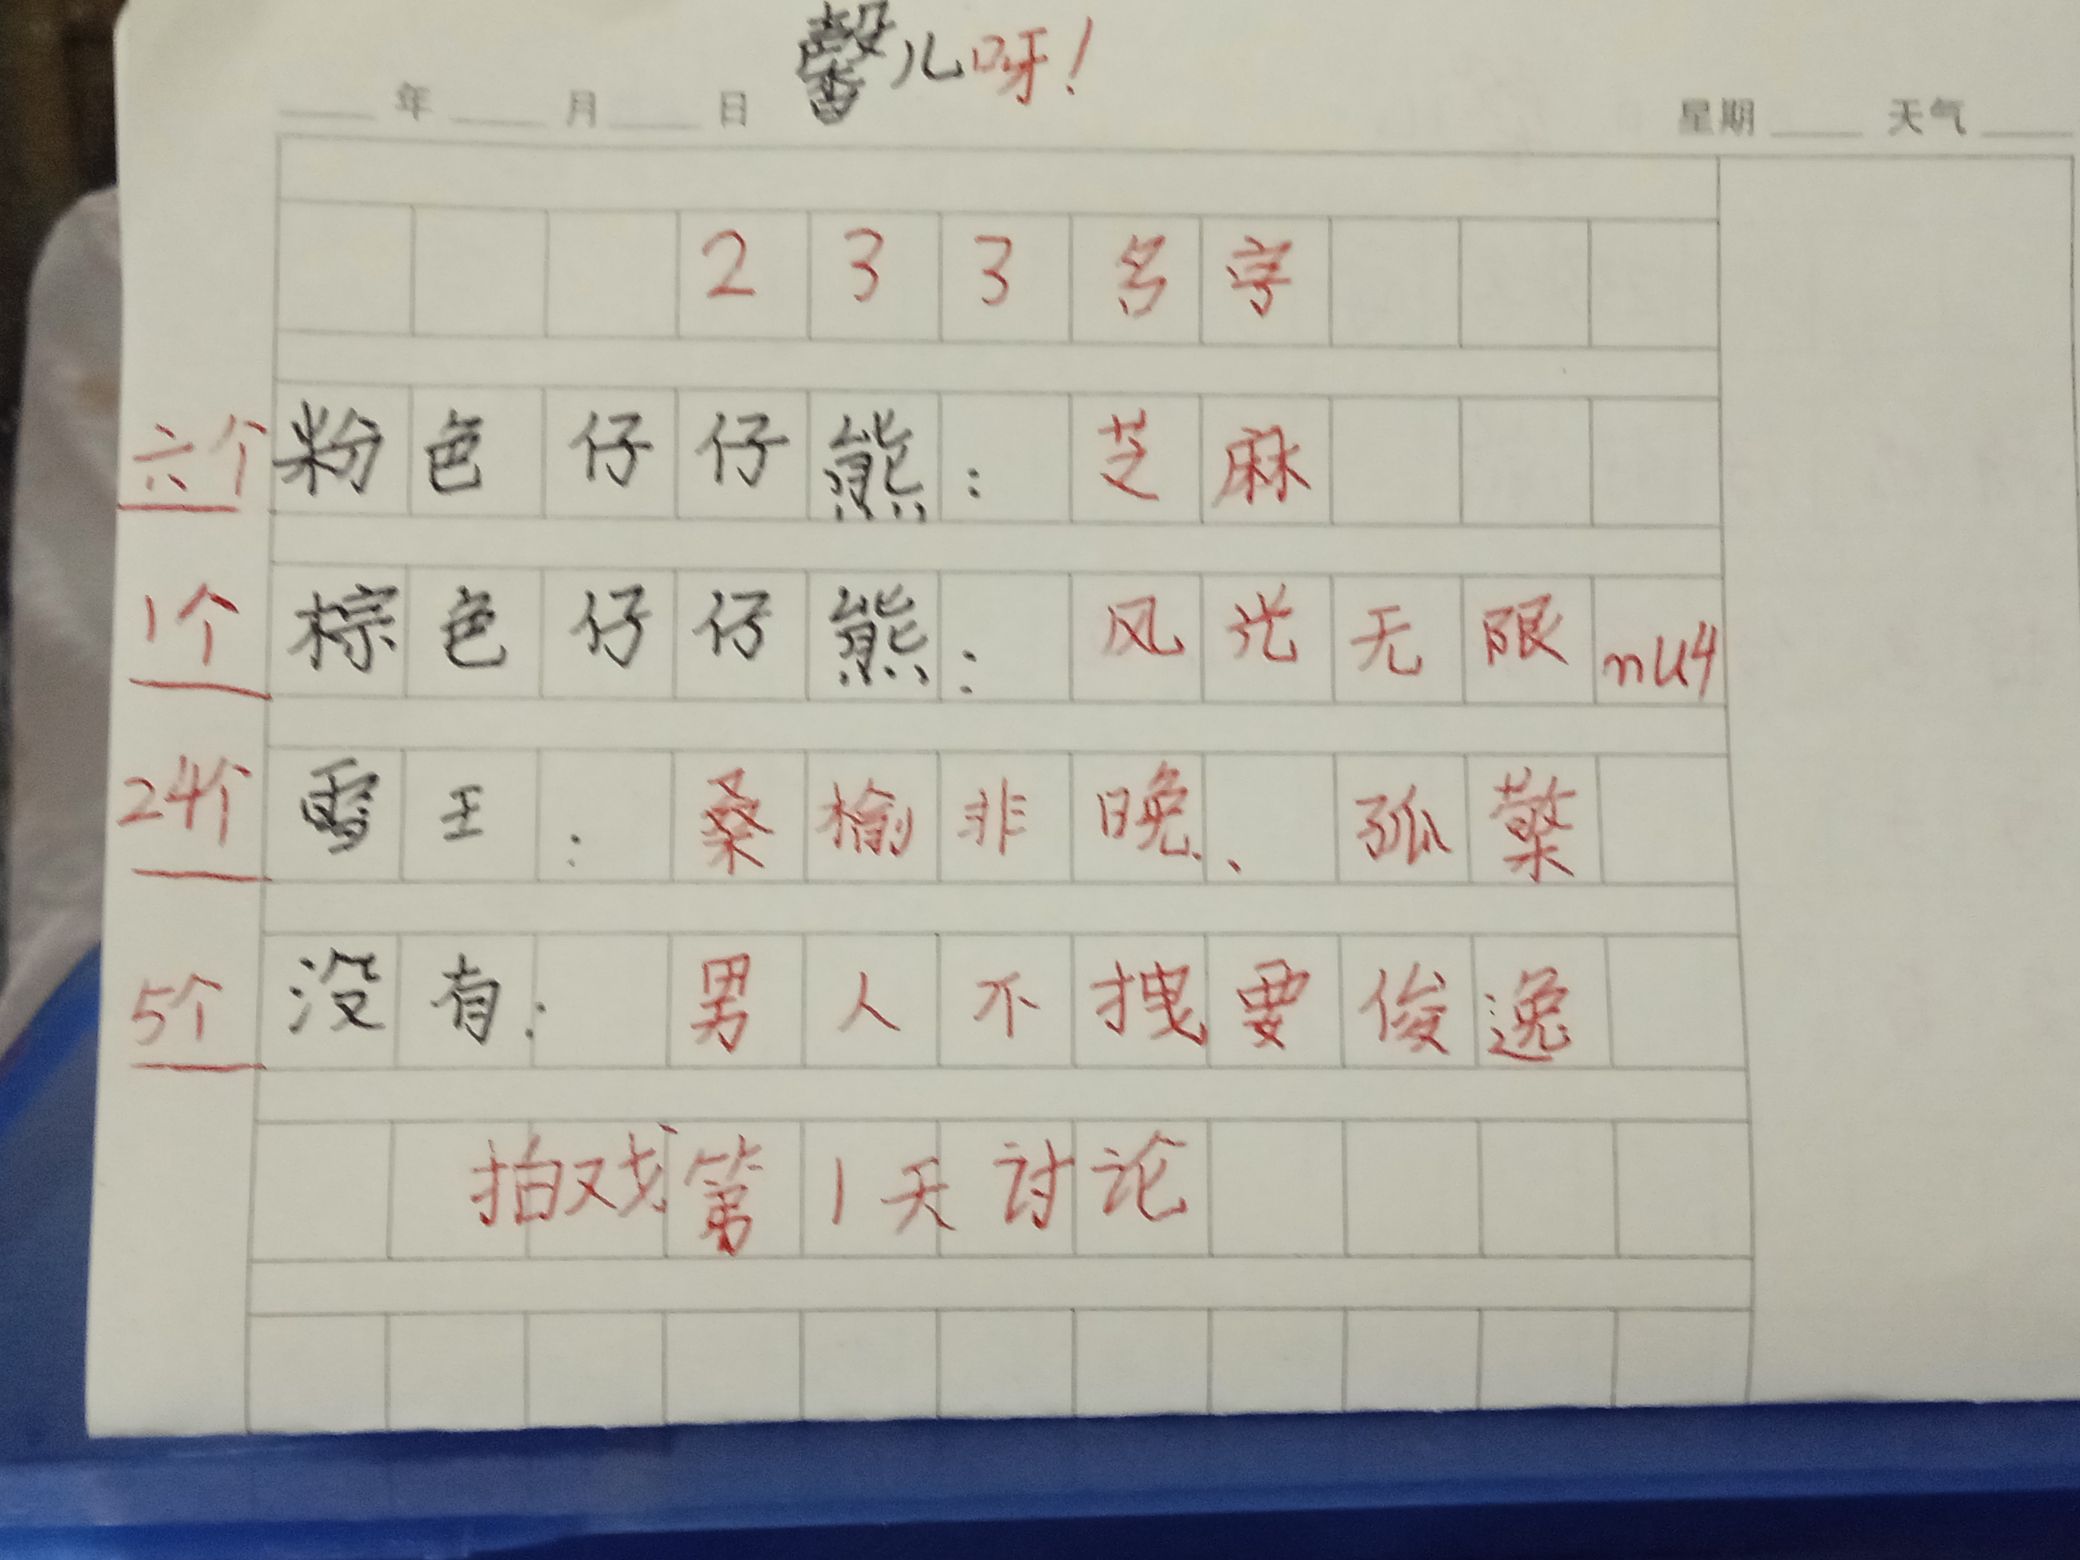 馨儿呀!
年 月 日 星期 天气
233名字
六个 粉色仔仔熊: 芝麻
1个 棕色仔仔熊: 风光无限nu4
24个 雪王: 桑榆非晚、孤檠
5个 没有: 男人不拽要俊逸
拍戏第1天讨论